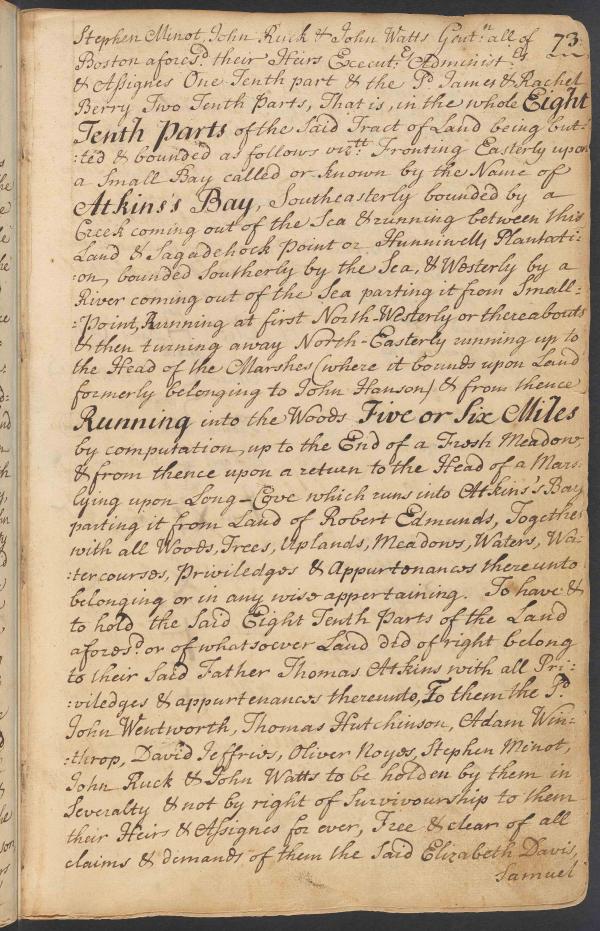 73
Stephen Minot, John Ruck & John Watts Gent:n all of
Boston afores:d their Heirs Execut:rs Administ:rs
& Assignes One Tenth part & the s:d James & Rachel
Berry Two Tenth Parts, That is, in the whole Eight
Tenth Parts of the Said Tract of Land being but-
:ted & bounded as follows viz:tt Fronting Easterly upon
a Small Bay called or known by the Name of
Atkins's Bay, Southeasterly bounded by a
Creek coming out of the Sea & running between this
Land & Sagadehock Point or Hunniwells Plantati-
:on, bounded Southerly by the Sea, & Westerly by a
River coming out of the Sea parting it from Small-
:Point, Running at first North-Westerly or thereabouts
& then turning away North-Easterly running up to
the Head of the Marshes (where it bounds upon Land
formerly belonging to John Hanson) & from thence
Running into the Woods Five or Six Miles
by computation, up to the End of a Fresh Meadow,
& from thence upon a return to the Head of a Mars
lying upon Long-Cove which runs into Atkins's Bay
parting it from Land of Robert Edmunds, Together
with all Woods, Trees, Uplands, Meadows, Waters, Wa-
:tercourses, Priviledges & Appurtenances thereunto
belonging or in any wise appertaining. To have &
to hold the Said Eight Tenth Parts of the Land
afores:d or of whatsoever Land did of right belong
to their Said Father Thomas Atkins with all Pri-
:viledges & appurtenances thereunto, To them the s:d
John Wentworth, Thomas Hutchinson, Adam Win-
:throp, David Jeffries, Oliver Noyes, Stephen Minot,
John Ruck & John Watts to be holden by them in
Severalty & not by right of Survivourship to them
their Heirs & Assignes for ever, Free & clear of all
claims & demands of them the Said Elizabeth Davis,
Samuel